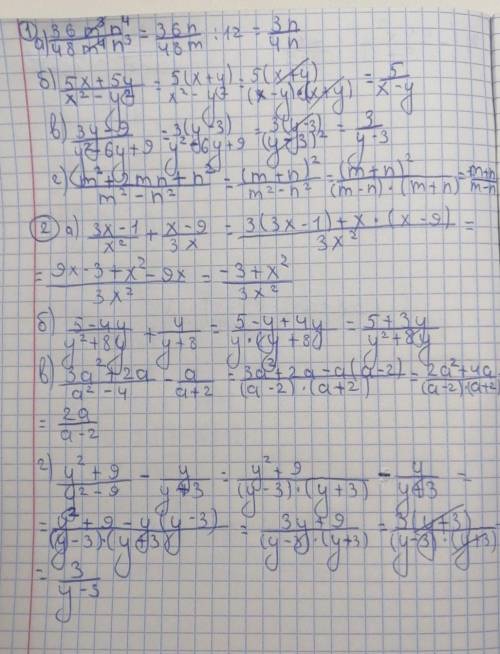 ① а) 36 m³n⁴ / 48 m⁴n³ = 36n / 48m : 12 = 3n / 4n
б) 5x+5y / x²-y² = 5(x+y) / x²-y² = 5(x+y) / (x-y)·(x+y) = 5 / x-y
в) 3y-9 / y²-6y+9 = 3(y-3) / y²-6y+9 = 3(y-3) / (y-3)² = 3 / y-3
г) m²+2mn+n² / m²-n² = (m+n)² / m²-n² = (m+n)² / (m-n)·(m+n) = m+n / m-n
② а) 3x-1 / x² + x-9 / 3x = 3(3x-1)+x·(x-9) / 3x² =
= 9x-3+x²-9x / 3x² = -3+x² / 3x²
б) 5-4y / y²+8y + y / y+8 = 5-y+4y / y·(y+8) = 5+3y / y²+8y
в) 3a²+2a / a²-4 - a / a+2 = 3a²+2a-a(a-2) / (a-2)·(a+2) = 2a²+4a / (a-2)·(a+2)
= 2a / a-2
г) y²+9 / y²-9 - y / y+3 = y²+9 / (y-3)·(y+3) - y / y+3 =
= y²+9-y(y-3) / (y-3)·(y+3) = 3y+9 / (y-3)·(y+3) = 3(y+3) / (y-3)·(y+3)
= 3 / y-3